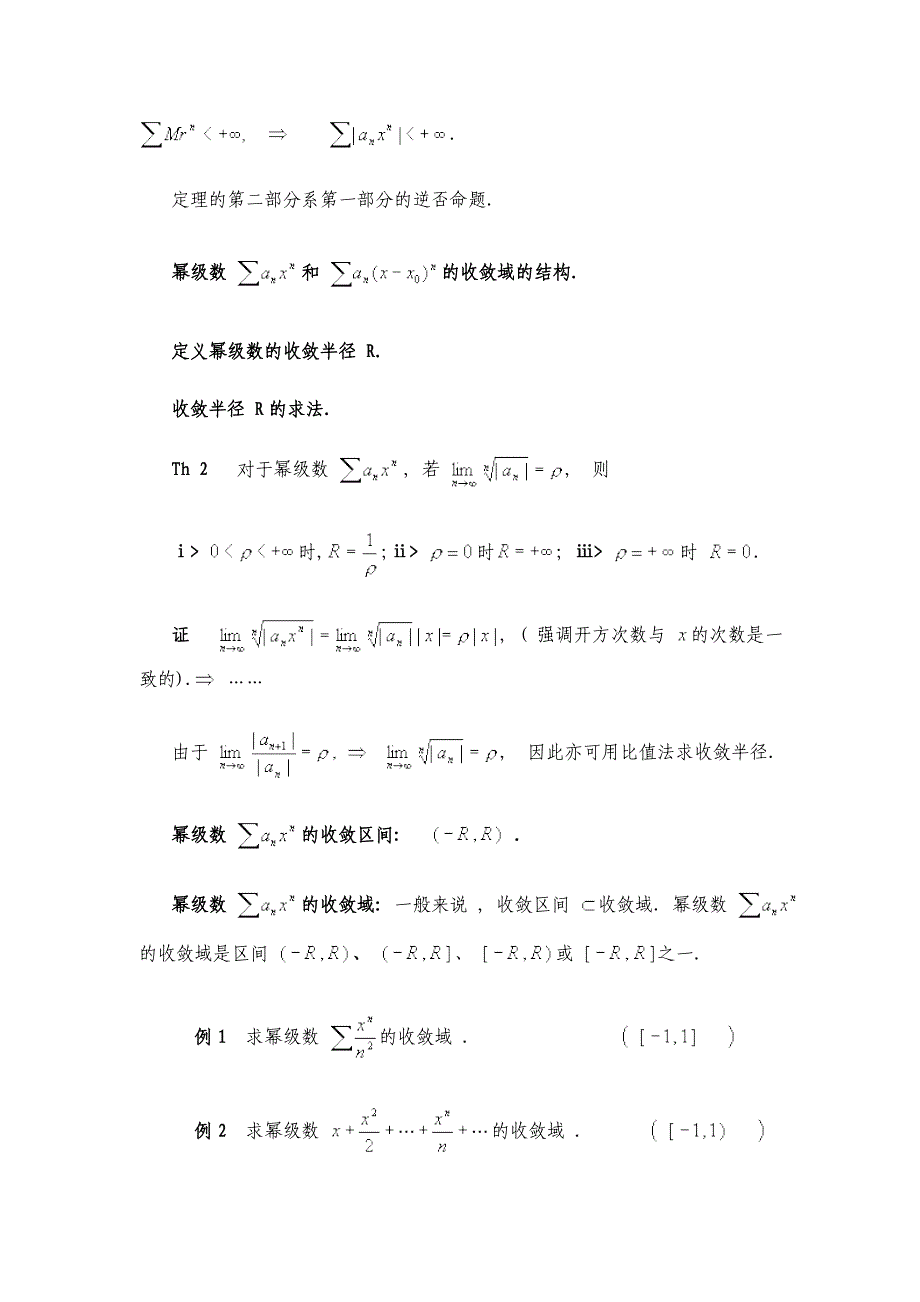 ∑Mrⁿ < +∞, ⇒ ∑|aₙxⁿ| < +∞ .
定理的第二部分系第一部分的逆否命题.
幂级数 ∑aₙxⁿ 和 ∑aₙ(x−x₀)ⁿ 的收敛域的结构.
定义幂级数的收敛半径 R.
收敛半径 R 的求法.
Th 2 对于幂级数 ∑aₙxⁿ , 若 lim_{n→∞} ⁿ√|aₙ| = ρ, 则
ⅰ> 0 < ρ < +∞ 时, R = 1/ρ ; ⅱ> ρ = 0 时 R = +∞ ; ⅲ> ρ = +∞ 时 R = 0 .
证 lim_{n→∞} ⁿ√|aₙxⁿ| = lim_{n→∞} ⁿ√|aₙ| |x| = ρ|x| , ( 强调开方次数与 x 的次数是一
致的). ⇒ ……
由于 lim_{n→∞} |aₙ₊₁|/|aₙ| = ρ , ⇒ lim_{n→∞} ⁿ√|aₙ| = ρ, 因此亦可用比值法求收敛半径.
幂级数 ∑aₙxⁿ 的收敛区间: (−R, R) .
幂级数 ∑aₙxⁿ 的收敛域: 一般来说 , 收敛区间 ⊂ 收敛域. 幂级数 ∑aₙxⁿ
的收敛域是区间 (−R, R)、 (−R, R]、 [−R, R) 或 [−R, R] 之一.
例 1 求幂级数 ∑ xⁿ/n² 的收敛域 . ( [−1,1] )
例 2 求幂级数 x + x²/2 + ⋯ + xⁿ/n + ⋯ 的收敛域 . ( [−1,1) )